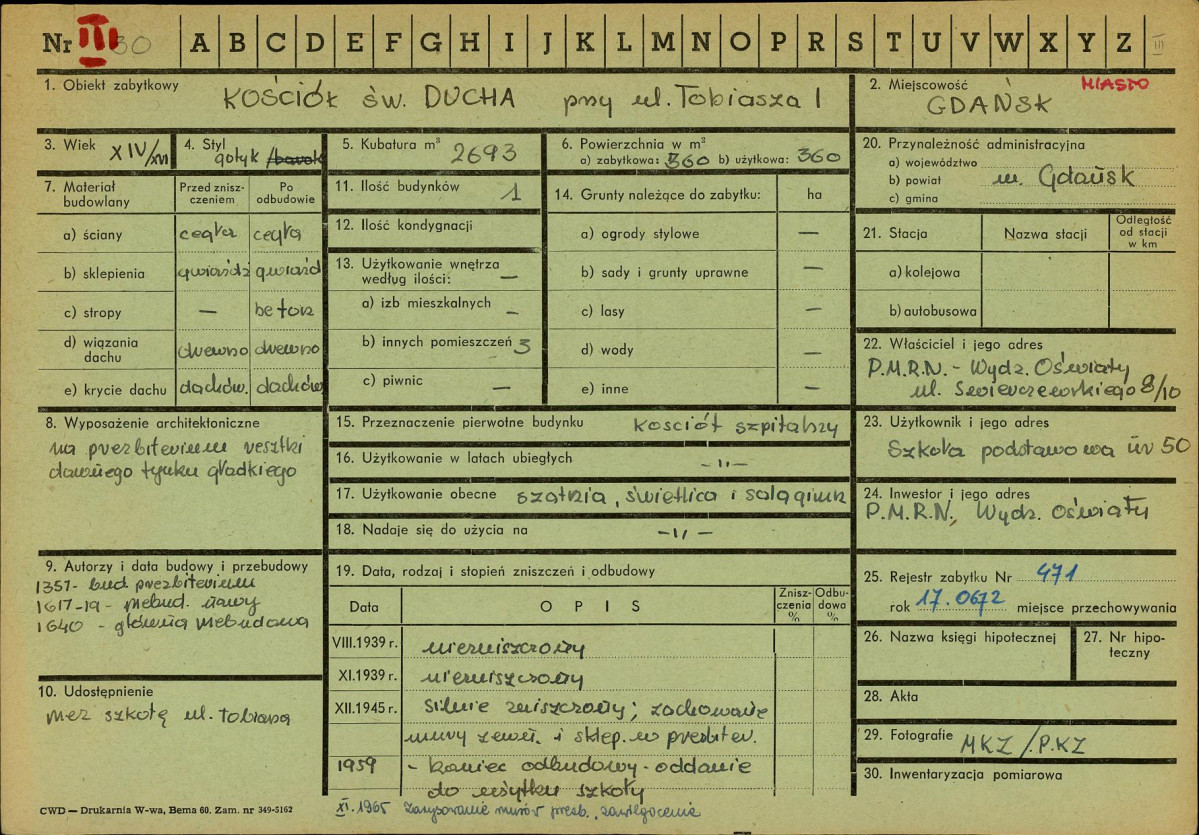 Nr III 30 A B C D E F G H I J K L M N O P R S T U V W X Y Z III
1. Obiekt zabytkowy KOŚCIÓŁ ŚW. DUCHA przy ul. Tobiasza 1
2. Miejscowość MIASTO
GDAŃSK
3. Wiek XIV/XVI
4. Styl gotyk /barok
5. Kubatura m³ 2693
6. Powierzchnia w m²
a) zabytkowa: 360 b) użytkowa: 360
20. Przynależność administracyjna
a) województwo
b) powiat m. Gdańsk
c) gmina
7. Materiał budowlany
Przed zniszczeniem
Po odbudowie
a) ściany cegła cegła
b) sklepienia gwiaźdz gwiaźd
c) stropy — beton
d) wiązania dachu drewno drewno
e) krycie dachu dachów. dachów
11. Ilość budynków 1
12. Ilość kondygnacji
13. Użytkowanie wnętrza
według ilości: —
a) izb mieszkalnych —
b) innych pomieszczeń 3
c) piwnic —
14. Grunty należące do zabytku: ha
a) ogrody stylowe —
b) sady i grunty uprawne —
c) lasy —
d) wody —
e) inne —
21. Stacja
Nazwa stacji
Odległość
od stacji
w km
a) kolejowa
b) autobusowa
22. Właściciel i jego adres
P.M.R.N. - Wydz. Oświaty
ul. Świerczewskiego 8/10
8. Wyposażenie architektoniczne
na prezbiterium resztki
dawnego tynku gładkiego
15. Przeznaczenie pierwotne budynku kościół szpitalny
16. Użytkowanie w latach ubiegłych -"-
17. Użytkowanie obecne szatnia, świetlica i sala gimn
18. Nadaje się do użycia na -"-
23. Użytkownik i jego adres
Szkoła podstawowa nr 50
24. Inwestor i jego adres
P.M.R.N., Wydz. Oświaty
9. Autorzy i data budowy i przebudowy
1357- bud prezbiterium
1617-19- przebud. nawy
1640 - główna przebudowa
10. Udostępnienie
przez szkołę ul. Tobiasza
19. Data, rodzaj i stopień zniszczeń i odbudowy
Data OPIS Zniszczenia % Odbudowa %
VIII.1939 r. niezniszczony
XI.1939 r. niezniszczony
XII.1945 r. silnie zniszczony; zachowanie
mury zewn. i sklep. w prezbiter.
1959 - koniec odbudowy - oddanie
do użytku szkoły
XI.1965 Zarysowanie murów prezb., zawilgocenie
25. Rejestr zabytku Nr 471
rok 17.0672 miejsce przechowywania
26. Nazwa księgi hipotecznej
27. Nr hipoteczny
28. Akta
29. Fotografie MKZ /. PKZ
30. Inwentaryzacja pomiarowa
CWD — Drukarnia W-wa, Bema 60. Zam. nr 349-5162